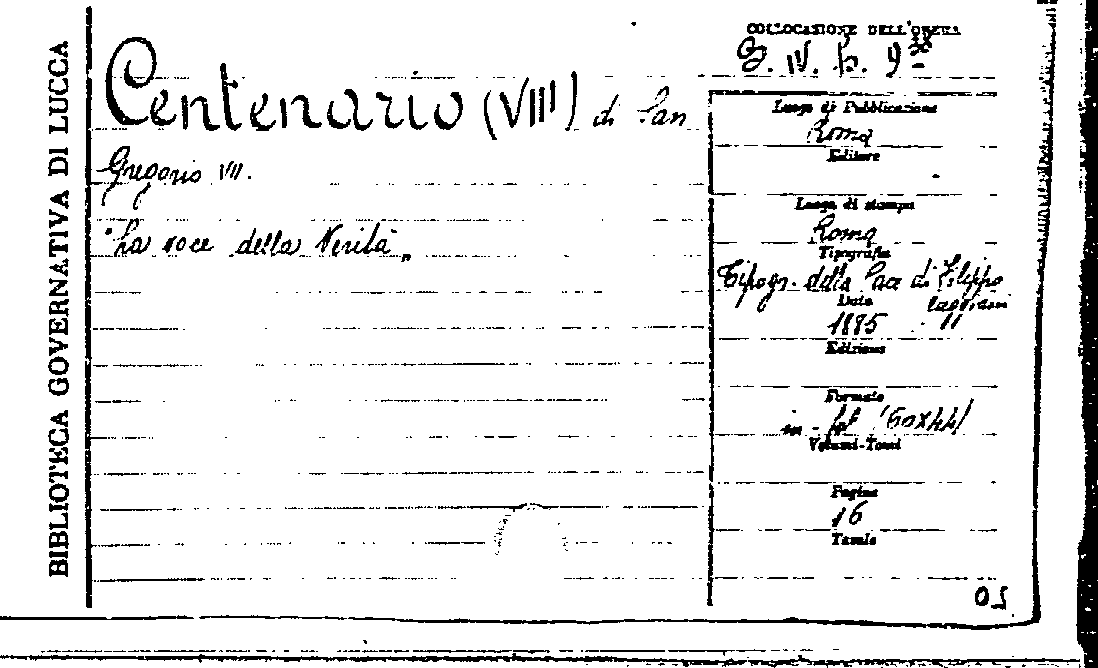 BIBLIOTECA GOVERNATIVA DI LUCCA
Centenario (VIII) di San
Gregorio VII.
"La voce della Verità"
COLLOCAZIONE DELL'OPERA
Luogo di Pubblicazione
Roma
Editore
Luogo di stampa
Roma
Tipografia
Tipogr. della Pace di Filippo
Data
1885
Edizione
Formato
in - fol (60x44)
Volumi-Tomi
Pagine
16
Tavole